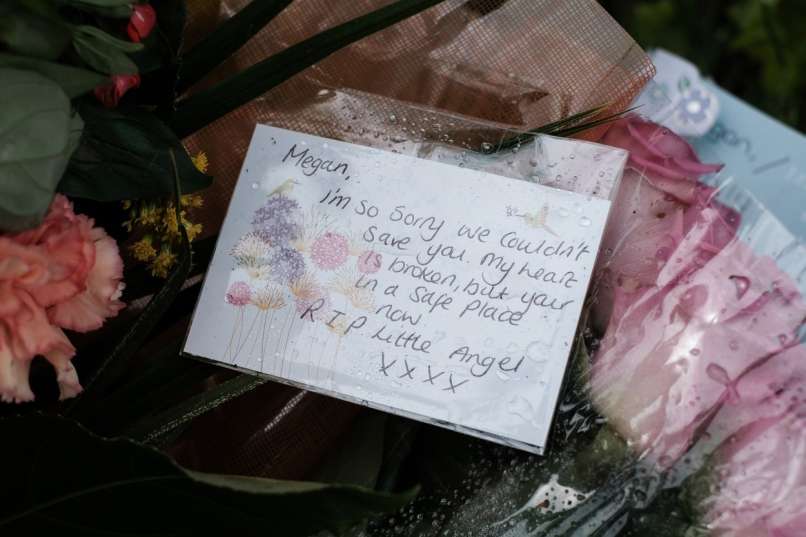 Megan,
I'm so sorry we couldn't
save you. My heart
is broken, but your
in a safe place
now.
R I P Little Angel
xxxx